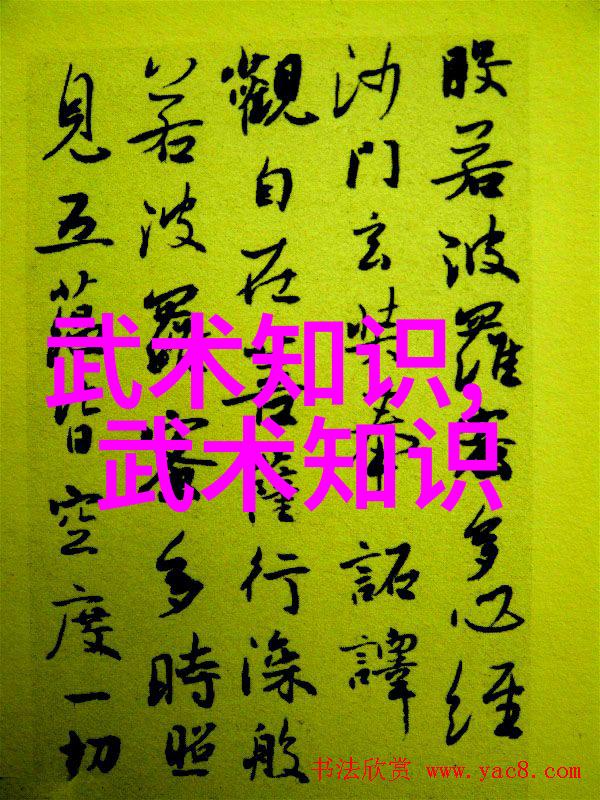 般若波羅蜜多心經
沙門玄奘奉 詔譯
觀自在菩薩行深般
若波羅蜜多時照
見五蘊皆空度一切
武术知识,
武术知识
书法欣赏 www.yac8.com